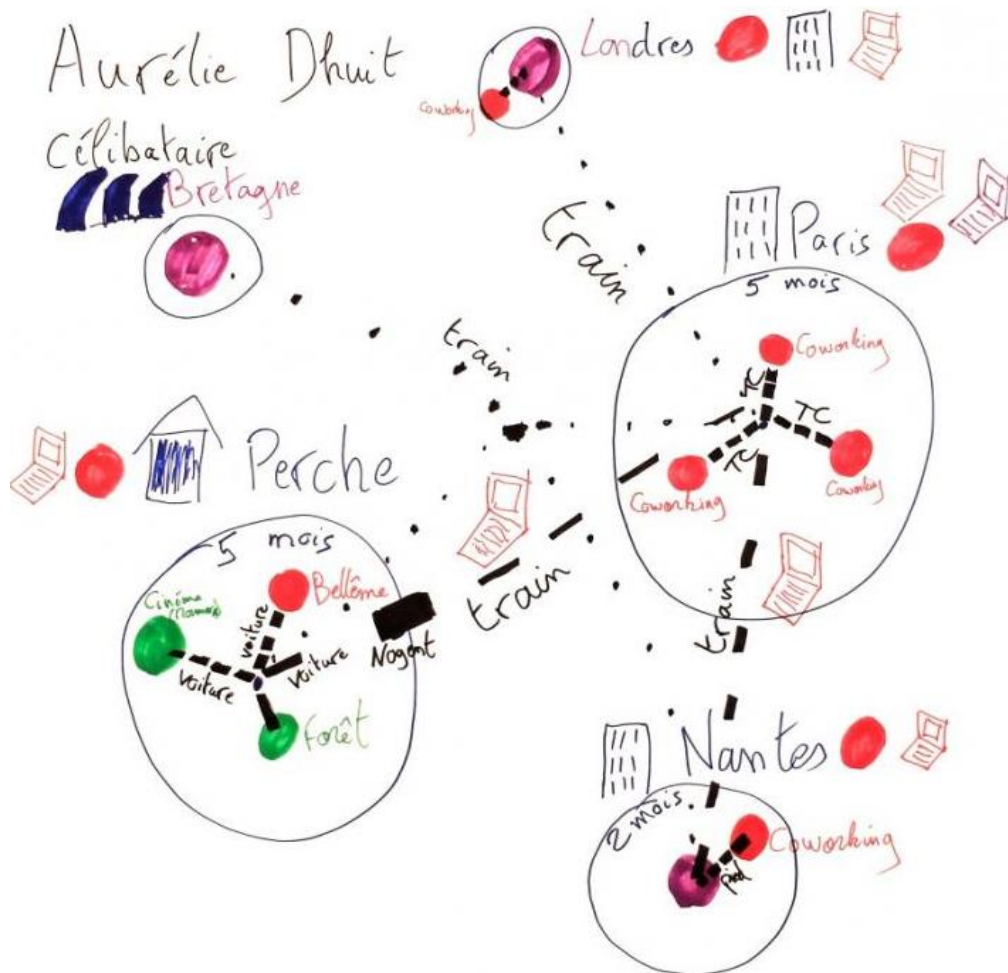 Aurélie Dhuit
Célibataire
Bretagne
Londres
Coworking
train
Paris
5 mois
Coworking
TC
TC
TC
Coworking
Coworking
train
Perche
5 mois
Cinéma
Bellême
voiture
voiture
voiture
Nogent
Forêt
train
train
Nantes
2 mois
Coworking
pied